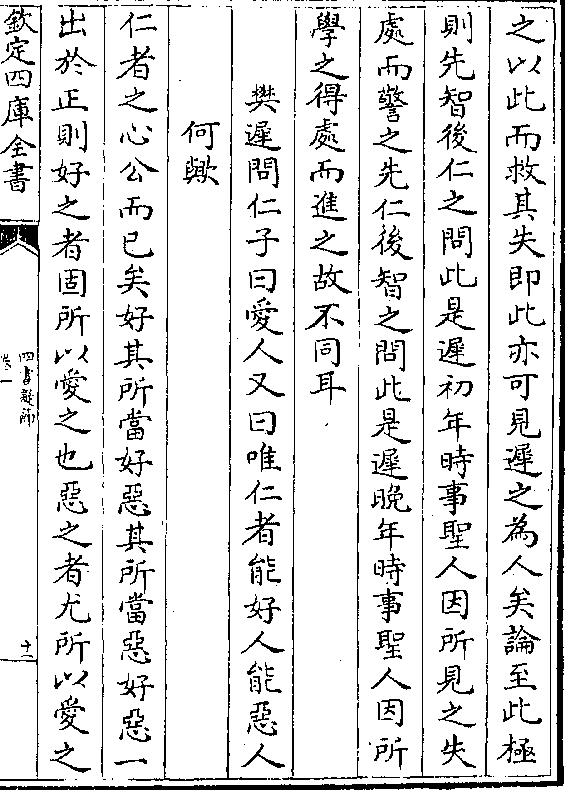 之以此而救其失即此亦可見遲之為人矣論至此極
則先智後仁之問此是遲初年時事聖人因所見之失
處而警之先仁後智之問此是遲晚年時事聖人因所
學之得處而進之故不同耳
樊遲問仁子曰愛人又曰唯仁者能好人能惡人
何歟
仁者之心公而已矣好其所當好惡其所當惡好惡一
出於正則好之者固所以愛之也惡之者尤所以愛之
欽定四庫全書
四書疑節
卷一
十一